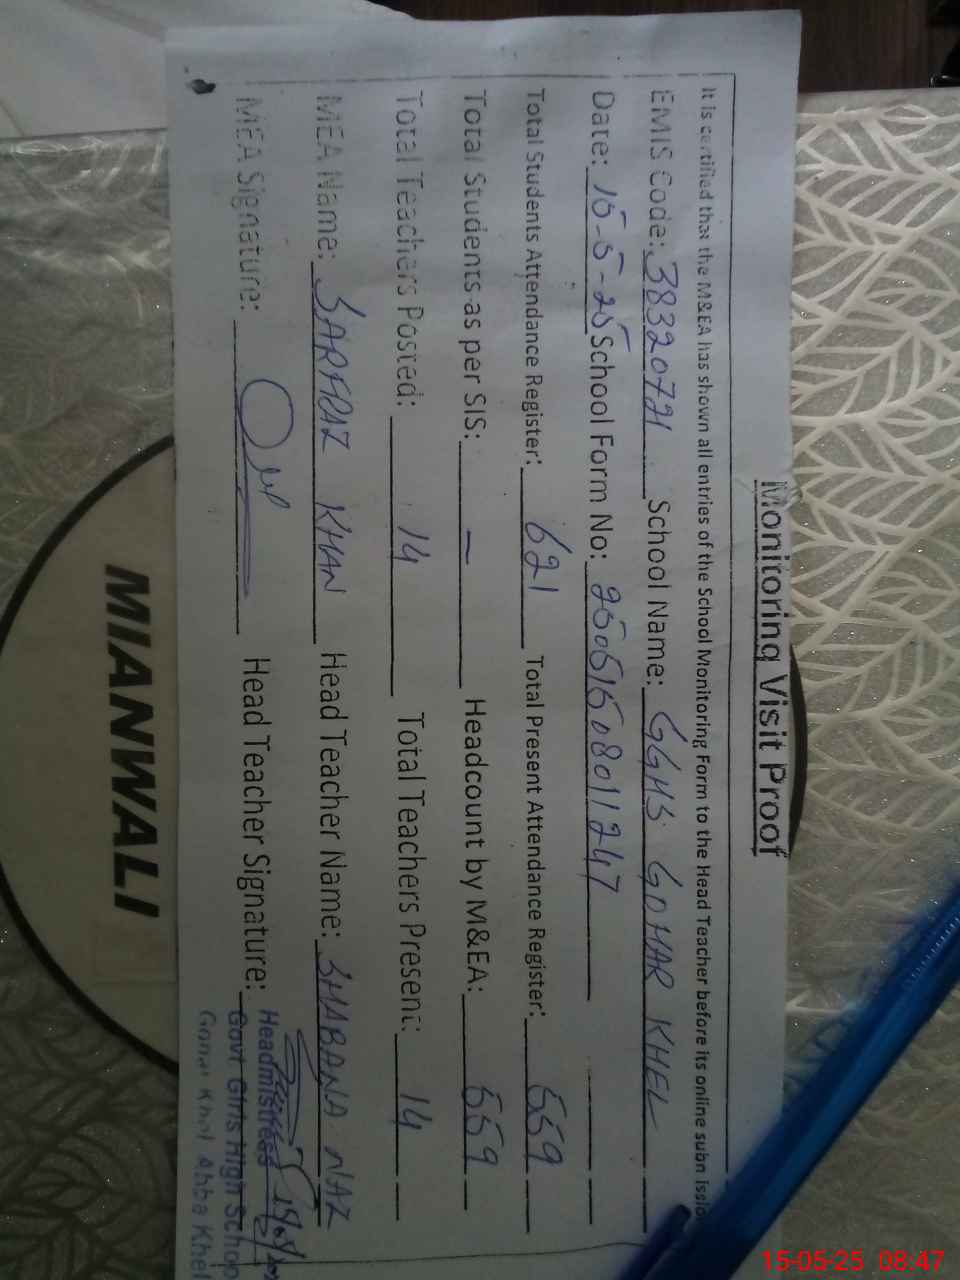 Monitoring Visit Proof
It is certified that the M&EA has shown all entries of the School Monitoring Form to the Head Teacher before its online
EMIS Code: 38320721 School Name: GGHS GOHAR KHEL
Date: 15-5-25 School Form No: 25051508011247
Total Students Attendance Register: 621 Total Present Attendance Register: 559
Total Students as per SIS: — Headcount by M&EA: 559
Total Teachers Posted: 14 Total Teachers Present: 14
MEA Name: SARFRAZ KHAN Head Teacher Name: SHABANA NAZ
MEA Signature: Head Teacher Signature:
Headmistress
Govt Girls High School
Khel Abba Khel
MIANWALI
15-05-25 08:47